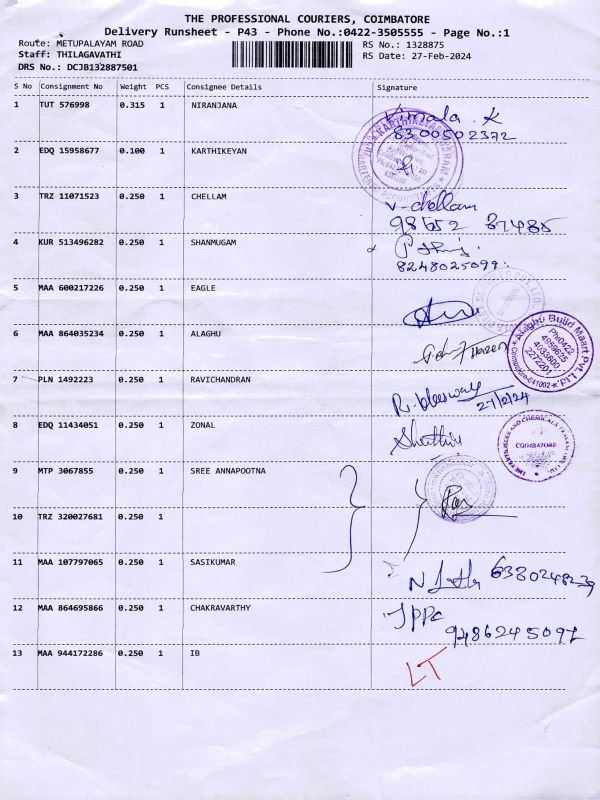 THE PROFESSIONAL COURIERS, COIMBATORE
Delivery Runsheet - P43 - Phone No.:0422-3505555 - Page No.:1
Route: METUPALAYAM ROAD RS No.: 1328875
Staff: THILAGAVATHI RS Date: 27-Feb-2024
DRS No.: DCJB132887501
S No Consignment No Weight PCS Consignee Details Signature
1 TUT 576998 0.315 1 NIRANJANA Vimala. K
8300502372
2 EDQ 15958677 0.100 1 KARTHIKEYAN
3 TRZ 11071523 0.250 1 CHELLAM V. chellam
98652 37485
4 KUR 513496282 0.250 1 SHANMUGAM
8248025099
5 MAA 600217226 0.250 1 EAGLE
6 MAA 864035234 0.250 1 ALAGHU
Alaghu Build Maart Pvt Ltd.
Ph:0422
4959625
4033800
2272201
Coimbatore-641002
7 PLN 1492223 0.250 1 RAVICHANDRAN
27/2/24
8 EDQ 11434051 0.250 1 ZONAL
COIMBATORE
9 MTP 3067855 0.250 1 SREE ANNAPOOTNA
10 TRZ 320027681 0.250 1
11 MAA 107797065 0.250 1 SASIKUMAR 6380248239
12 MAA 864695866 0.250 1 CHAKRAVARTHY
9486245092
13 MAA 944172286 0.250 1 IB LT